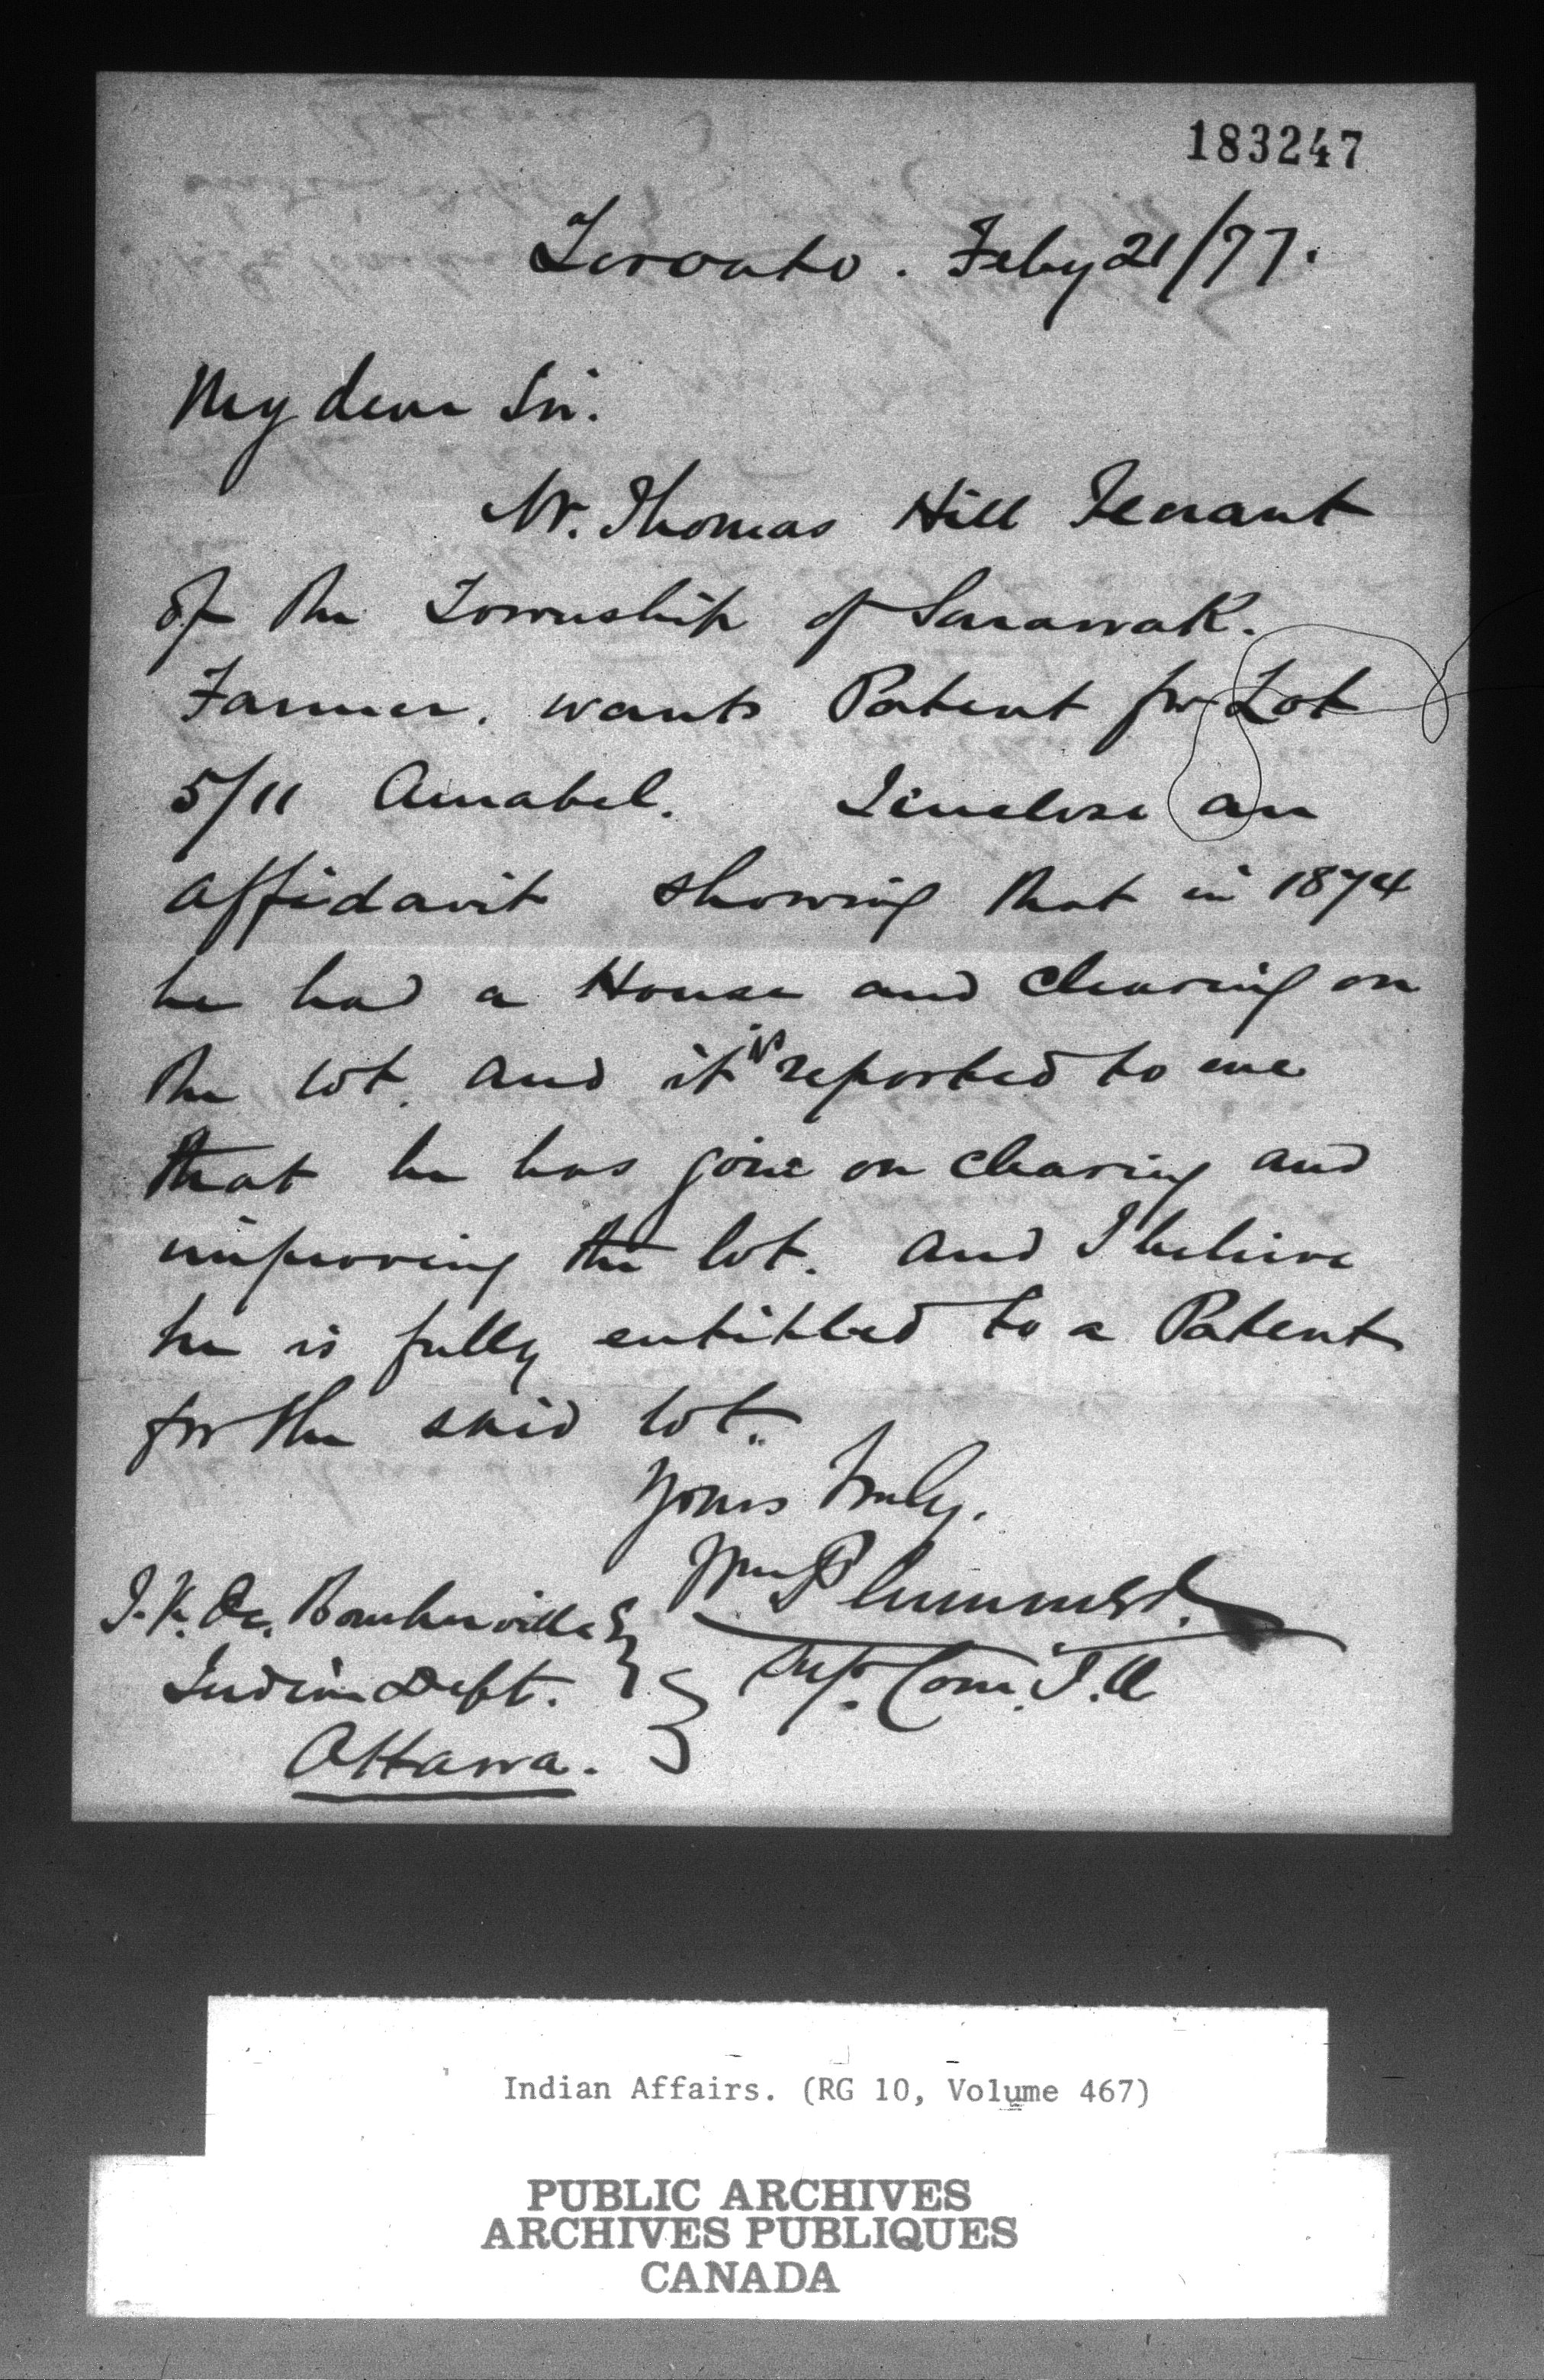 183247
Toronto. Feby 21/77.
My dear Sir.
Mr. Thomas Hill Tenant
of the Township of Sarawak.
Farmer. wants Patent for Lot
5/11 Amabel. I inclose an
affidavit showing that in 1874
he had a House and clearing on
the lot. and it is reported to me
that he has gone on clearing and
improving the lot. and I believe
he is fully entitled to a Patent
for the said lot.
Yours truly.
Wm Plummer
Sup. Com. I. A
J. V. De. Boucherville Esq
Indian Dept.
Ottawa.
Indian Affairs. (RG 10, Volume 467)
PUBLIC ARCHIVES
ARCHIVES PUBLIQUES
CANADA